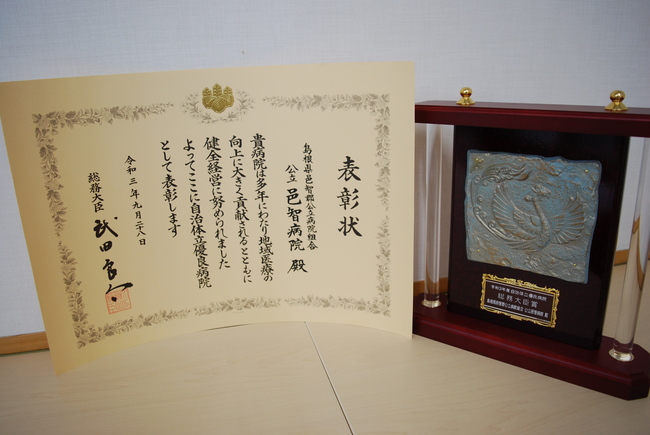 表彰状
島根県邑智郡公立病院組合
公立 邑智病院 殿
貴病院は多年にわたり地域医療の
向上に大きく貢献されるとともに
健全経営に努められました
よってここに自治体立優良病院
として表彰します
令和三年九月二十八日
総務大臣 武田良太
令和3年度自治体立優良病院
総務大臣賞